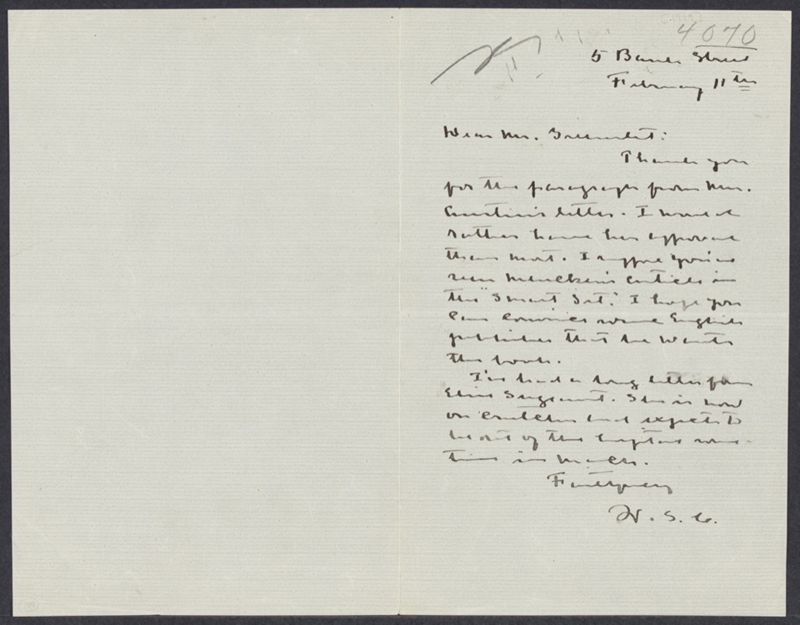 4070
5 Bank Street
February 11th
Dear Mr. Greenslet:
Thank you
for the paragraph from Mrs.
Austin's letter. I would
rather have her approval
than most. I suppose you've
seen Mencken's article in
the "Smart Set." I hope you
can convince some English
publisher that he wants
the book.
I've had a long letter from
Elsie Sergeant. She is now
on crutches and expects to
be out of the hospital some-
time in March.
Faithfully
W. S. C.